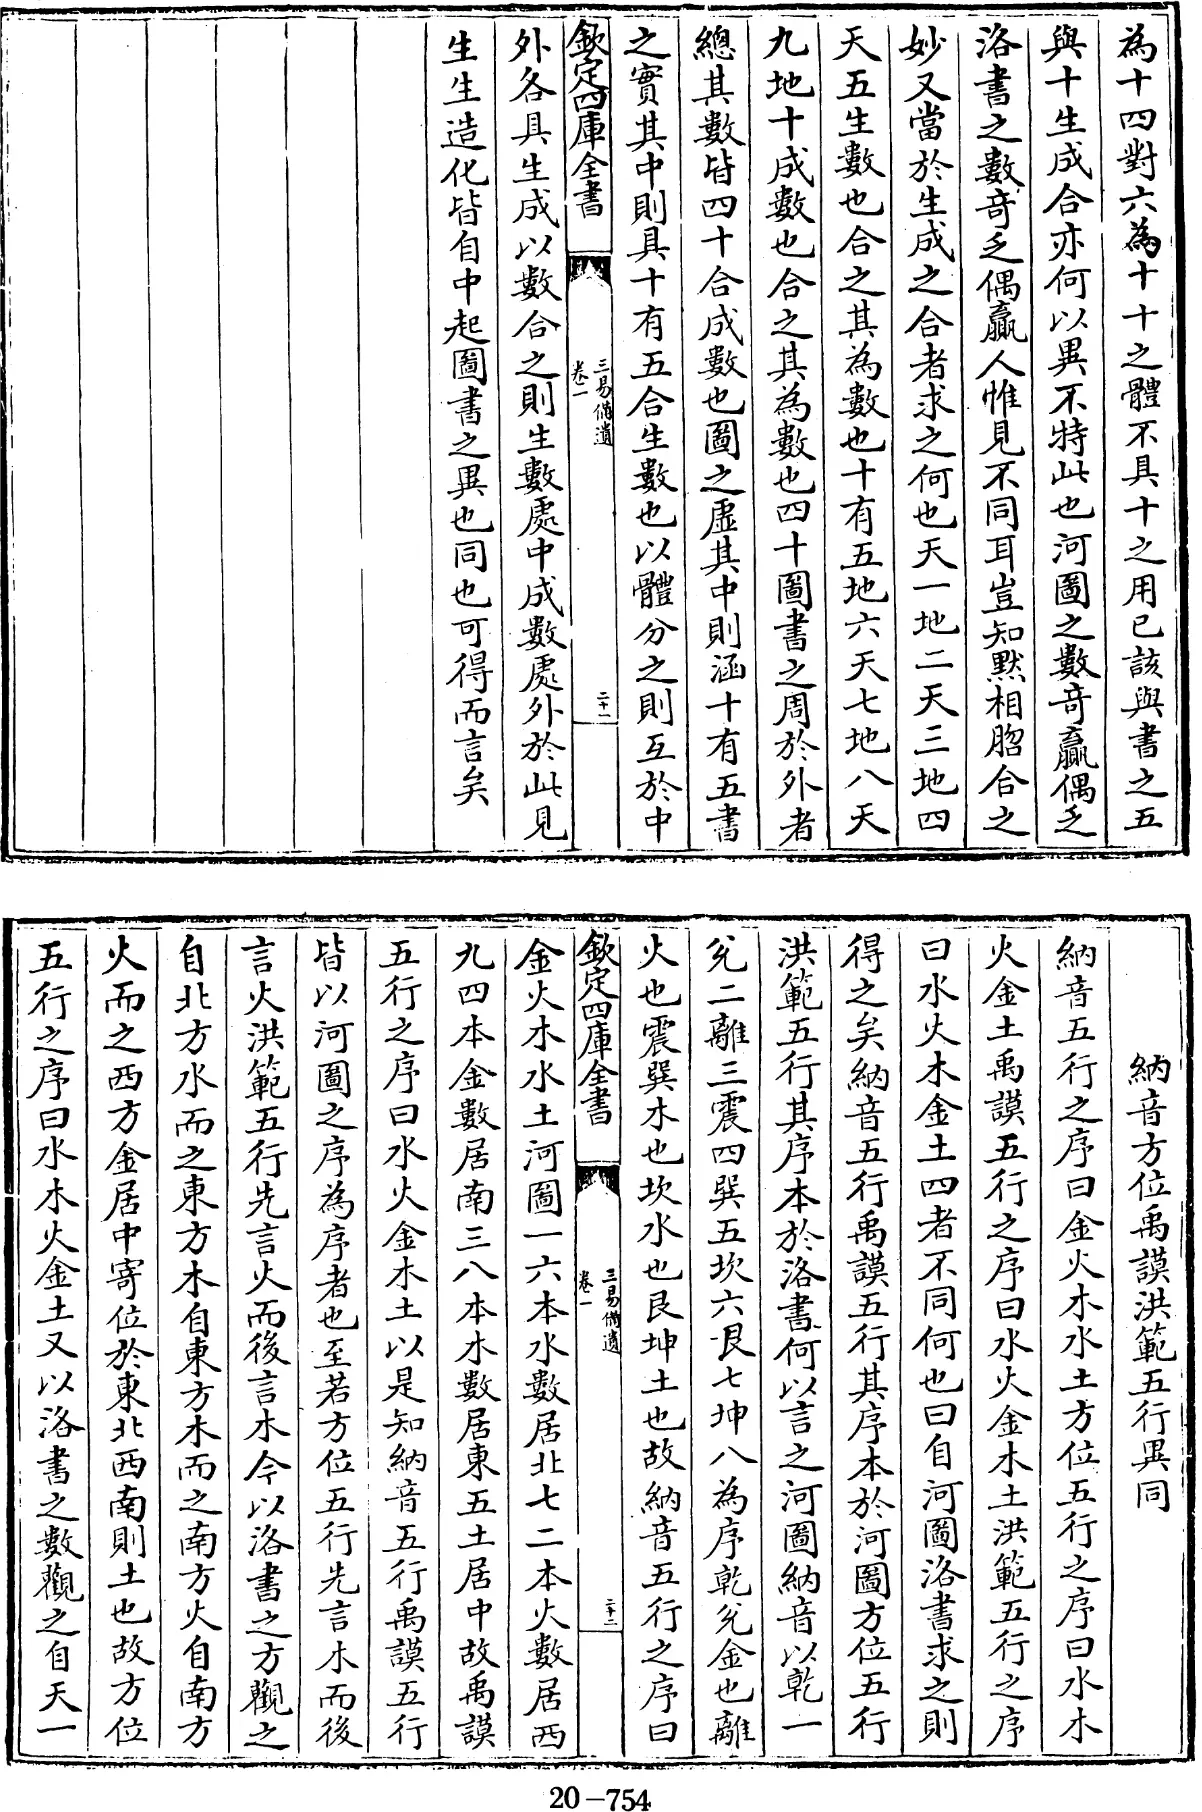 為十四對六為十十之體不具十之用已該與書之五
與十生成合亦何以異不特此也河圖之數奇贏偶乏
洛書之數奇乏偶贏人惟見不同耳豈知默相脗合之
妙又當於生成之合者求之何也天一地二天三地四
天五生數也合之其為數也十有五地六天七地八天
九地十成數也合之其為數也四十圖書之周於外者
總其數皆四十合成數也圖之虛其中則涵十有五書
之實其中則具十有五合生數也以體分之則互於中
欽定四庫全書
三易備遺
卷一
二十一
外各具生成以數合之則生數處中成數處外於此見
生生造化皆自中起圖書之異也同也可得而言矣
納音方位禹謨洪範五行異同
納音五行之序曰金火木水土方位五行之序曰水木
火金土禹謨五行之序曰水火金木土洪範五行之序
曰水火木金土四者不同何也曰自河圖洛書求之則
得之矣納音五行禹謨五行其序本於河圖方位五行
洪範五行其序本於洛書何以言之河圖納音以乾一
兌二離三震四巽五坎六艮七坤八為序乾兌金也離
火也震巽木也坎水也艮坤土也故納音五行之序曰
欽定四庫全書
三易備遺
卷一
二十二
金火木水土河圖一六本水數居北七二本火數居西
九四本金數居南三八本木數居東五土居中故禹謨
五行之序曰水火金木土以是知納音五行禹謨五行
皆以河圖之序為序者也至若方位五行先言木而後
言火洪範五行先言火而後言木今以洛書之方觀之
自北方水而之東方木自東方木而之南方火自南方
火而之西方金居中寄位於東北西南則土也故方位
五行之序曰水木火金土又以洛書之數觀之自天一
20-754